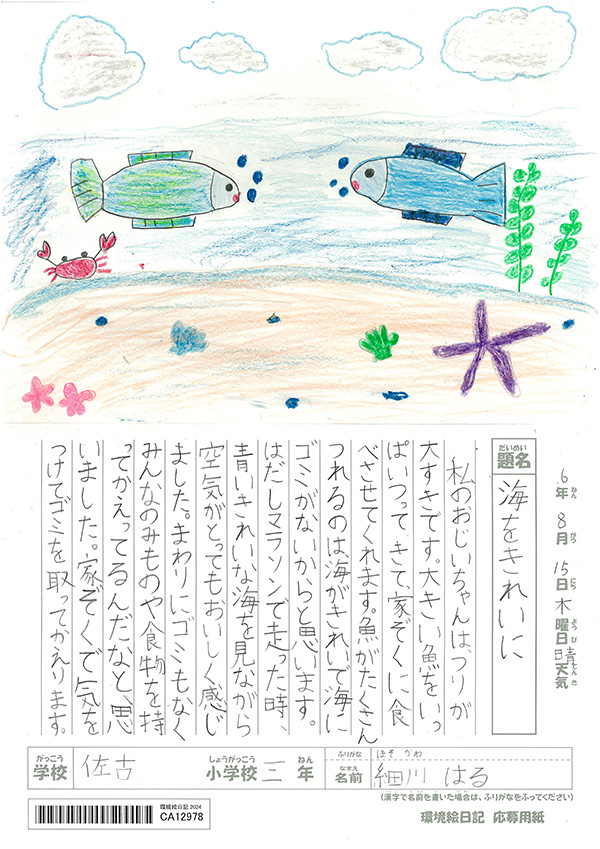 6年 8月 15日 木曜日 晴天気
ねん がつ にち ようび てんき
だいめい
題名
海をきれいに
私のおじいちゃんはつりが
大すきです。大きい魚をいっ
ぱいつって、きて、家ぞくに食
べさせてくれます。魚がたくさん
つれるのは海がきれいで海に
ゴミがないからと思います。
はだしマラソンで走った時、
青いきれいな海を見ながら
空気がとってもおいしく感じ
ました。まわりにゴミもなく
みんなのみものや食物を持
ってかえってるんだなと、思
いました。家ぞくで気を
つけてゴミを取ってかえります。
がっこう
学校
佐古
しょうがっこう ねん
小学校 三 年
ふりがな
ほそ かわ
なまえ
名前
細川 はる
(漢字で名前を書いた場合は、ふりがなをふってください)
環境絵日記 2024
CA12978
環境絵日記 応募用紙